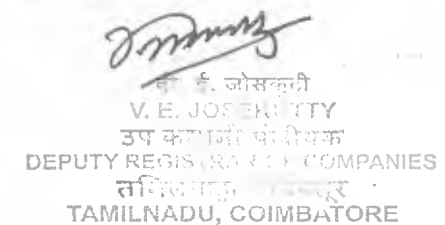 ई. जोसकुटी
V. E. JOSEKUTTY
उप कम्पनी पंजीयक
DEPUTY REGISTRAR OF COMPANIES
तमिलनाडु,
TAMILNADU, COIMBATORE